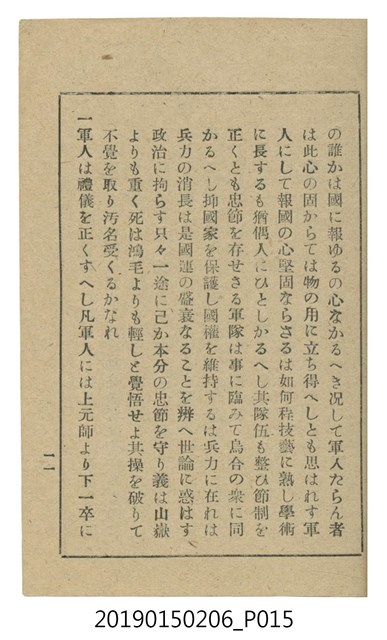 の誰かは國に報ゆるの心なかるへき况して軍人たらん者
は此心の固からては物の用に立ち得へしとも思はれす軍
人にして報國の心堅固ならさるは如何程技藝に熟し學術
に長するも猶偶人にひとしかるへし其隊伍も整ひ節制を
正くとも忠節を存せさる軍隊は事に臨みて烏合の衆に同
かるへし抑國家を保護し國權を維持するは兵力に在れは
兵力の消長は是國運の盛衰なることを辨へ世論に惑はす
政治に拘らす只々一途に己か本分の忠節を守り義は山嶽
よりも重く死は鴻毛よりも輕しと覺悟せよ其操を破りて
不覺を取り汚名受くるかなれ
一軍人は禮儀を正くすへし凡軍人には上元帥より下一卒に
一一
20190150206_P015